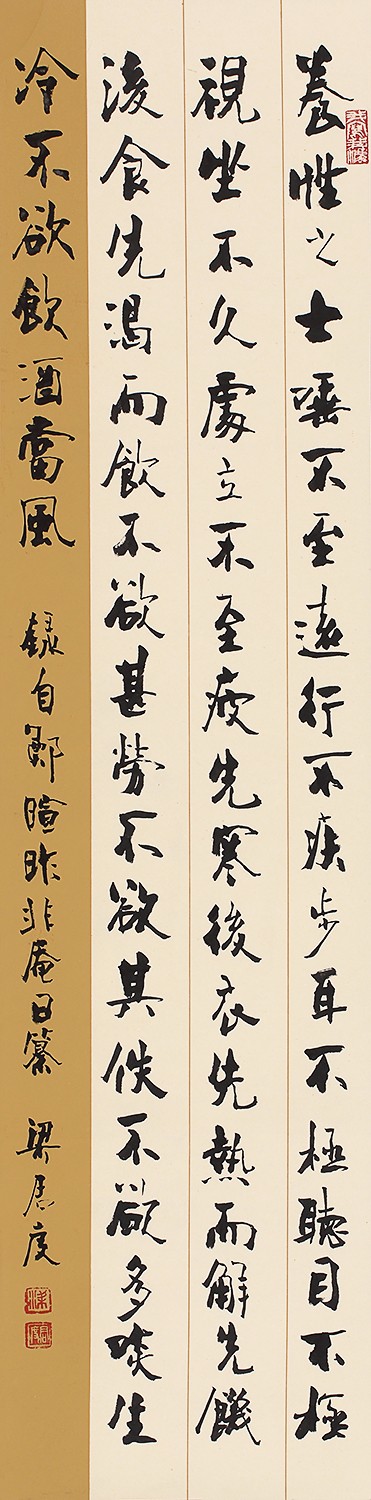 養性之士唾不至遠行不疾步耳不極聽目不極
視坐不久處立不至疲先寒後衣先熱而解先饑
後食先渴而飲不欲甚勞不欲其佚不欲多啖生
冷不欲飲酒當風 錄自鄭暄昨非庵日纂 梁君度